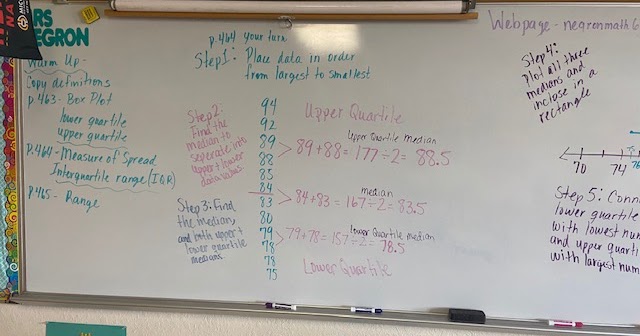 RS
EGRON
Warm Up -
Copy definitions
p.463- Box Plot
lower quartile
upper quartile
p.464- Measure of Spread
Interquartile range (IQR)
p.465- Range
p.464 your turn
Step 1: Place data in order
from largest to smallest
Step 2:
Find the
median to
seperate into
upper + lower
data values
Step 3: Find
the median,
and both upper +
lower quartile
medians.
94
92
89
88
85
84
83
80
79
78
78
75
Upper Quartile
Upper Quartile median
89+88=177÷2=88.5
median
84+83=167÷2=83.5
Lower Quartile median
79+78=157÷2=78.5
Lower Quartile
Webpage - negronmath6
Step 4:
Plot all three
medians and
inclose in a
rectangle
70 74 76
Step 5: Conn
lower quartile
with lowest num
and upper quarti
with largest num